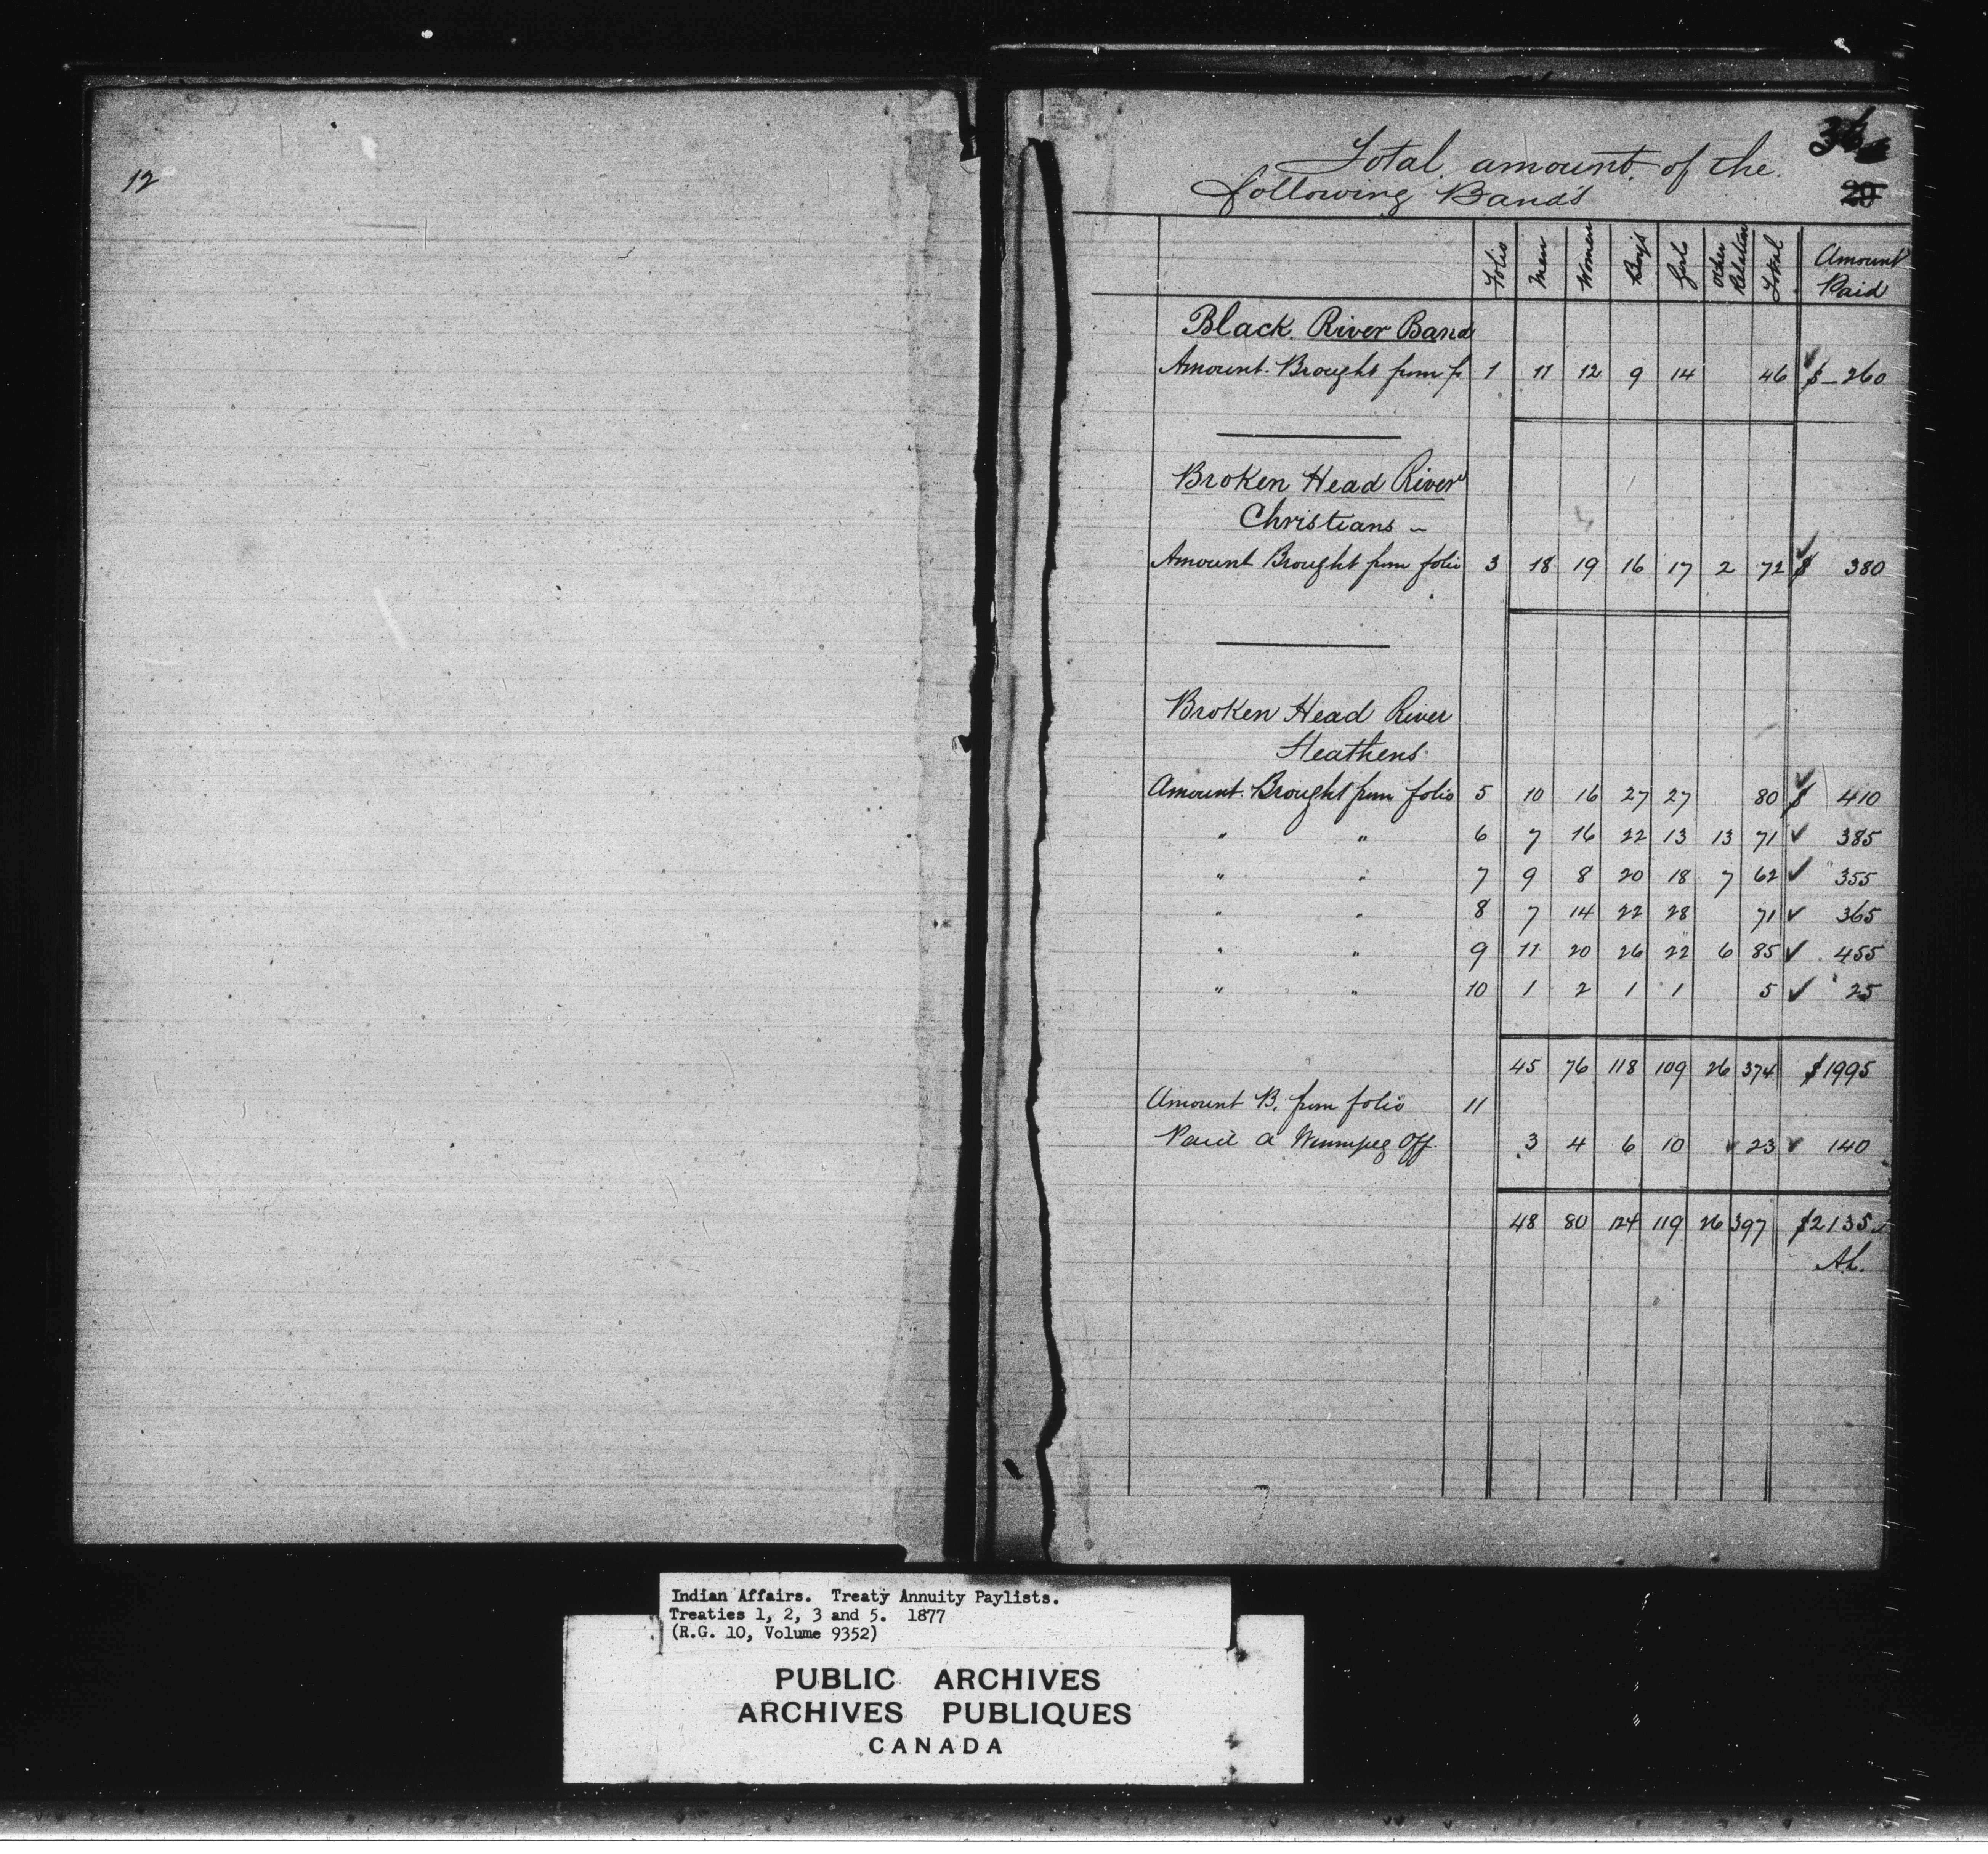 12
Total amount of the
following Bands
20
Folio Men Women Boys Girls Other Relation Total Amount Paid
Black River Band
Amount Brought from fo 1 11 12 9 14 46 $ 260
Broken Head River
Christians
Amount Brought from folio 3 18 19 16 17 2 72 $ 380
Broken Head River
Heathens
Amount Brought from folio 5 10 16 27 27 80 $ 410
" " 6 7 16 22 13 13 71 385
" " 7 9 8 20 18 7 62 355
" " 8 7 14 22 28 71 365
" " 9 11 20 26 22 6 85 455
" " 10 1 2 1 1 5 25
45 76 118 109 26 374 $1995
Amount B. from folio 11
Paid a Winnipeg Off. 3 4 6 10 23 140
48 80 124 119 26 397 $2135
Indian Affairs. Treaty Annuity Paylists.
Treaties 1, 2, 3 and 5. 1877
(R.G. 10, Volume 9352)
PUBLIC ARCHIVES
ARCHIVES PUBLIQUES
CANADA